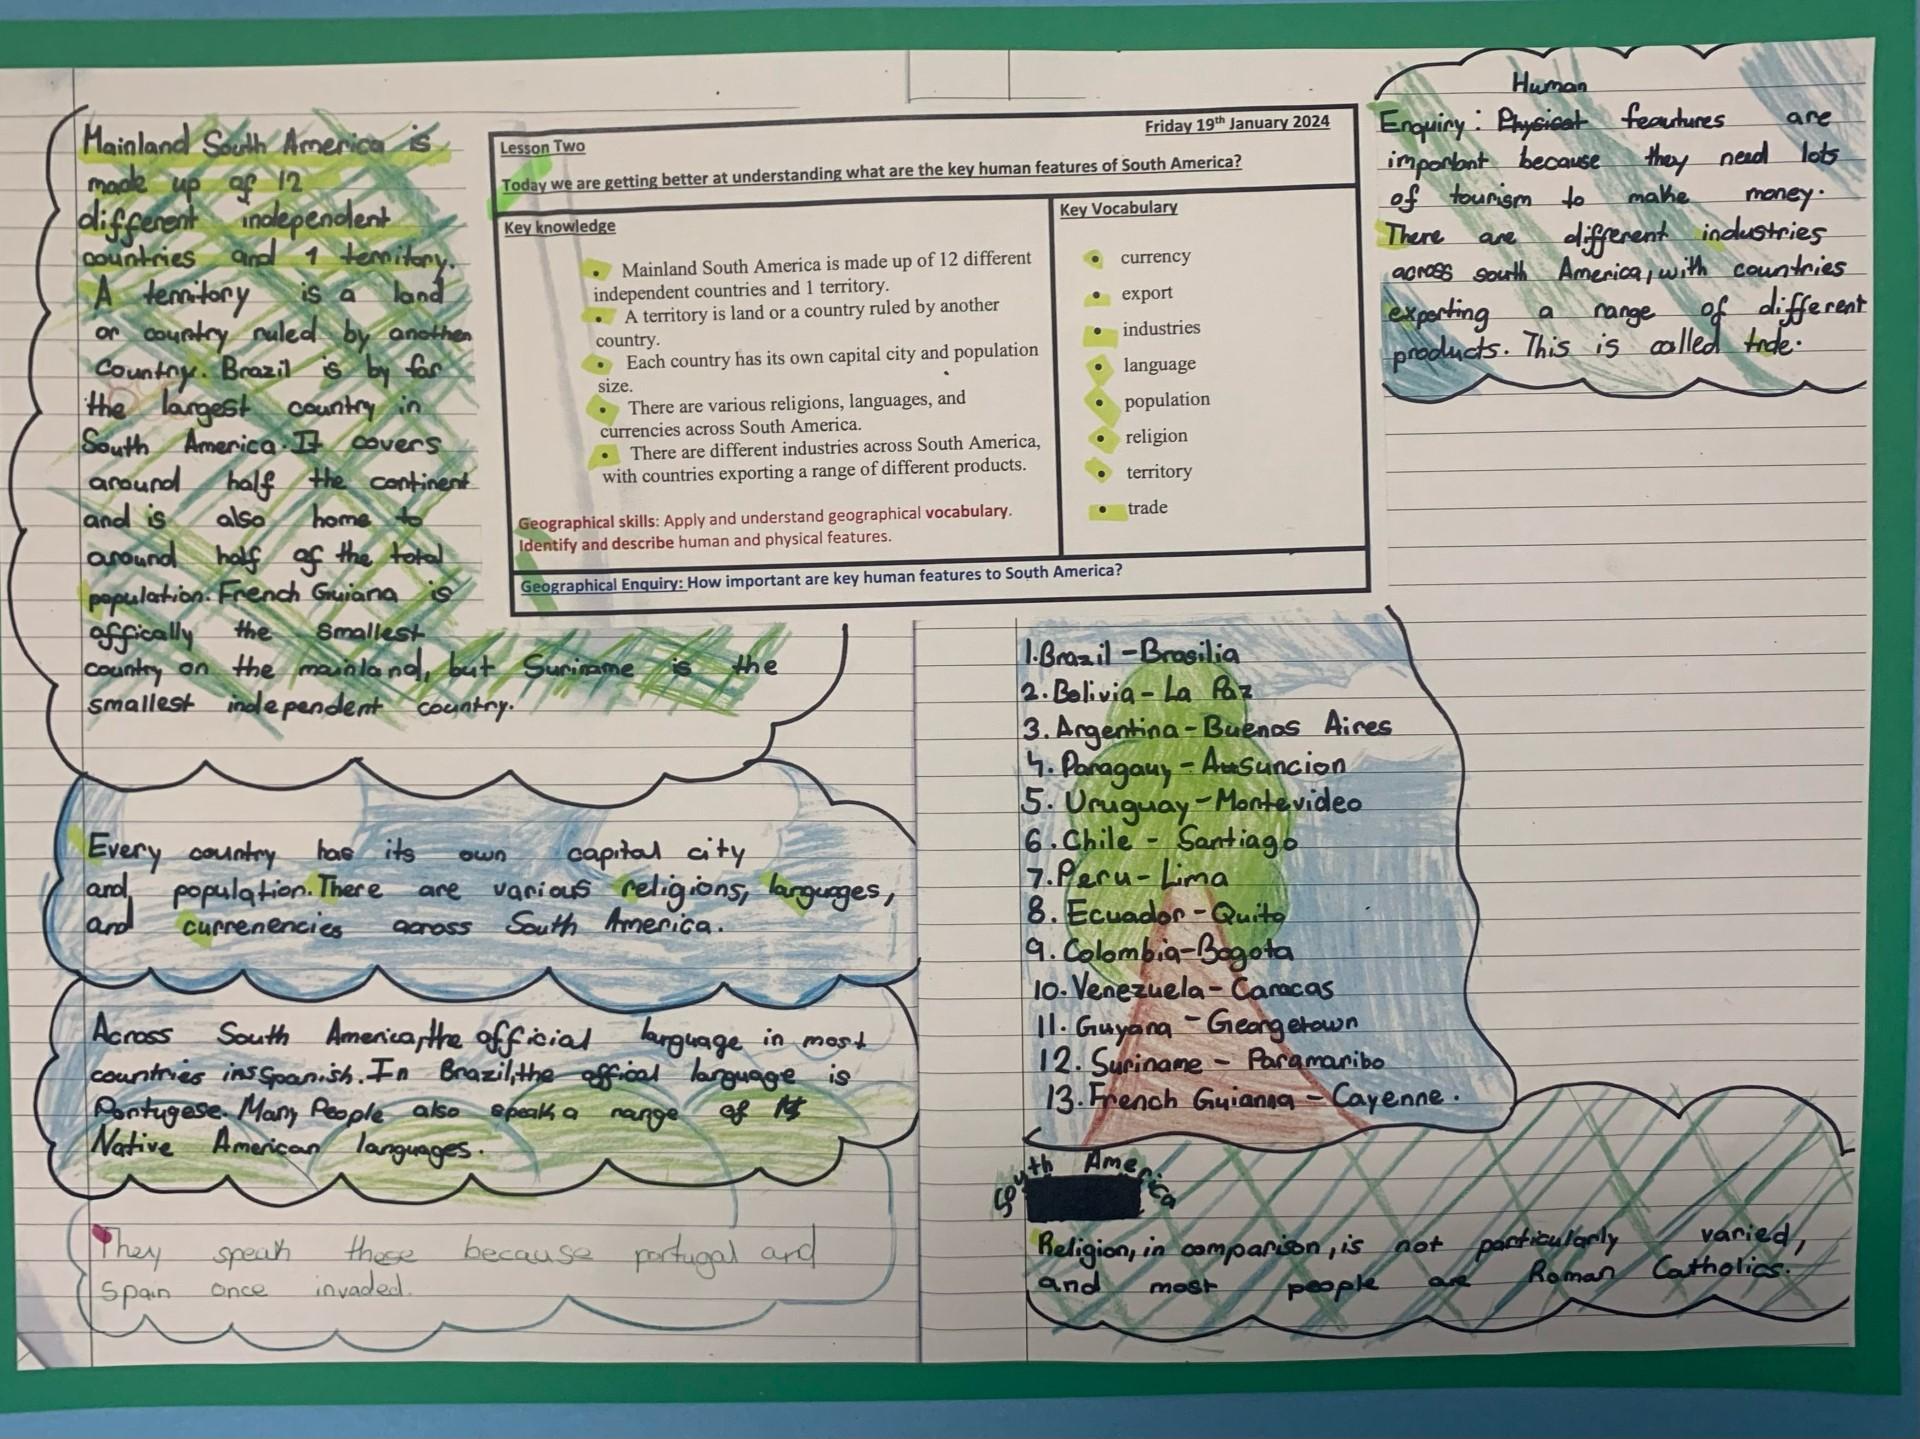 Mainland South America is
made up of 12
different independent
countries and 1 territory.
A territory is a land
or country ruled by another
Country. Brazil is by far
the largest country in
South America. It covers
around half the continent
and is also home to
around half of the total
population. French Guiana is
offically the smallest
country on the mainland, but Suriname is the
smallest independent country.
Every country has its own capital city
and population. There are various religions, languages,
and currenencies across South America.
Across South America, the official language in most
countries ins Spanish. In Brazil, the offical language is
Portugese. Many People also speak a range of
Native American languages.
They speak those because portugal and
Spain once invaded.
Friday 19th January 2024
Lesson Two
Today we are getting better at understanding what are the key human features of South America?
Key knowledge
• Mainland South America is made up of 12 different
independent countries and 1 territory.
• A territory is land or a country ruled by another
country.
• Each country has its own capital city and population
size.
• There are various religions, languages, and
currencies across South America.
• There are different industries across South America,
with countries exporting a range of different products.
Geographical skills: Apply and understand geographical vocabulary.
Identify and describe human and physical features.
Key Vocabulary
• currency
• export
• industries
• language
• population
• religion
• territory
• trade
Geographical Enquiry: How important are key human features to South America?
Human
Enquiry: Physical feautures are
important because they need lots
of tourism to make money.
There are different industries
across south America, with countries
exporting a range of different
products. This is called trde.
1. Brazil - Brasilia
2. Bolivia - La Paz
3. Argentina - Buenos Aires
4. Paragauy - Asuncion
5. Uruguay - Montevideo
6. Chile - Santiago
7. Peru - Lima
8. Ecuador - Quito
9. Colombia - Bogota
10. Venezuela - Caracas
11. Guyana - Georgetown
12. Suriname - Paramaribo
13. French Guianna - Cayenne.
South America
Religion, in comparison, is not particularly varied,
and most people are Roman Catholics.